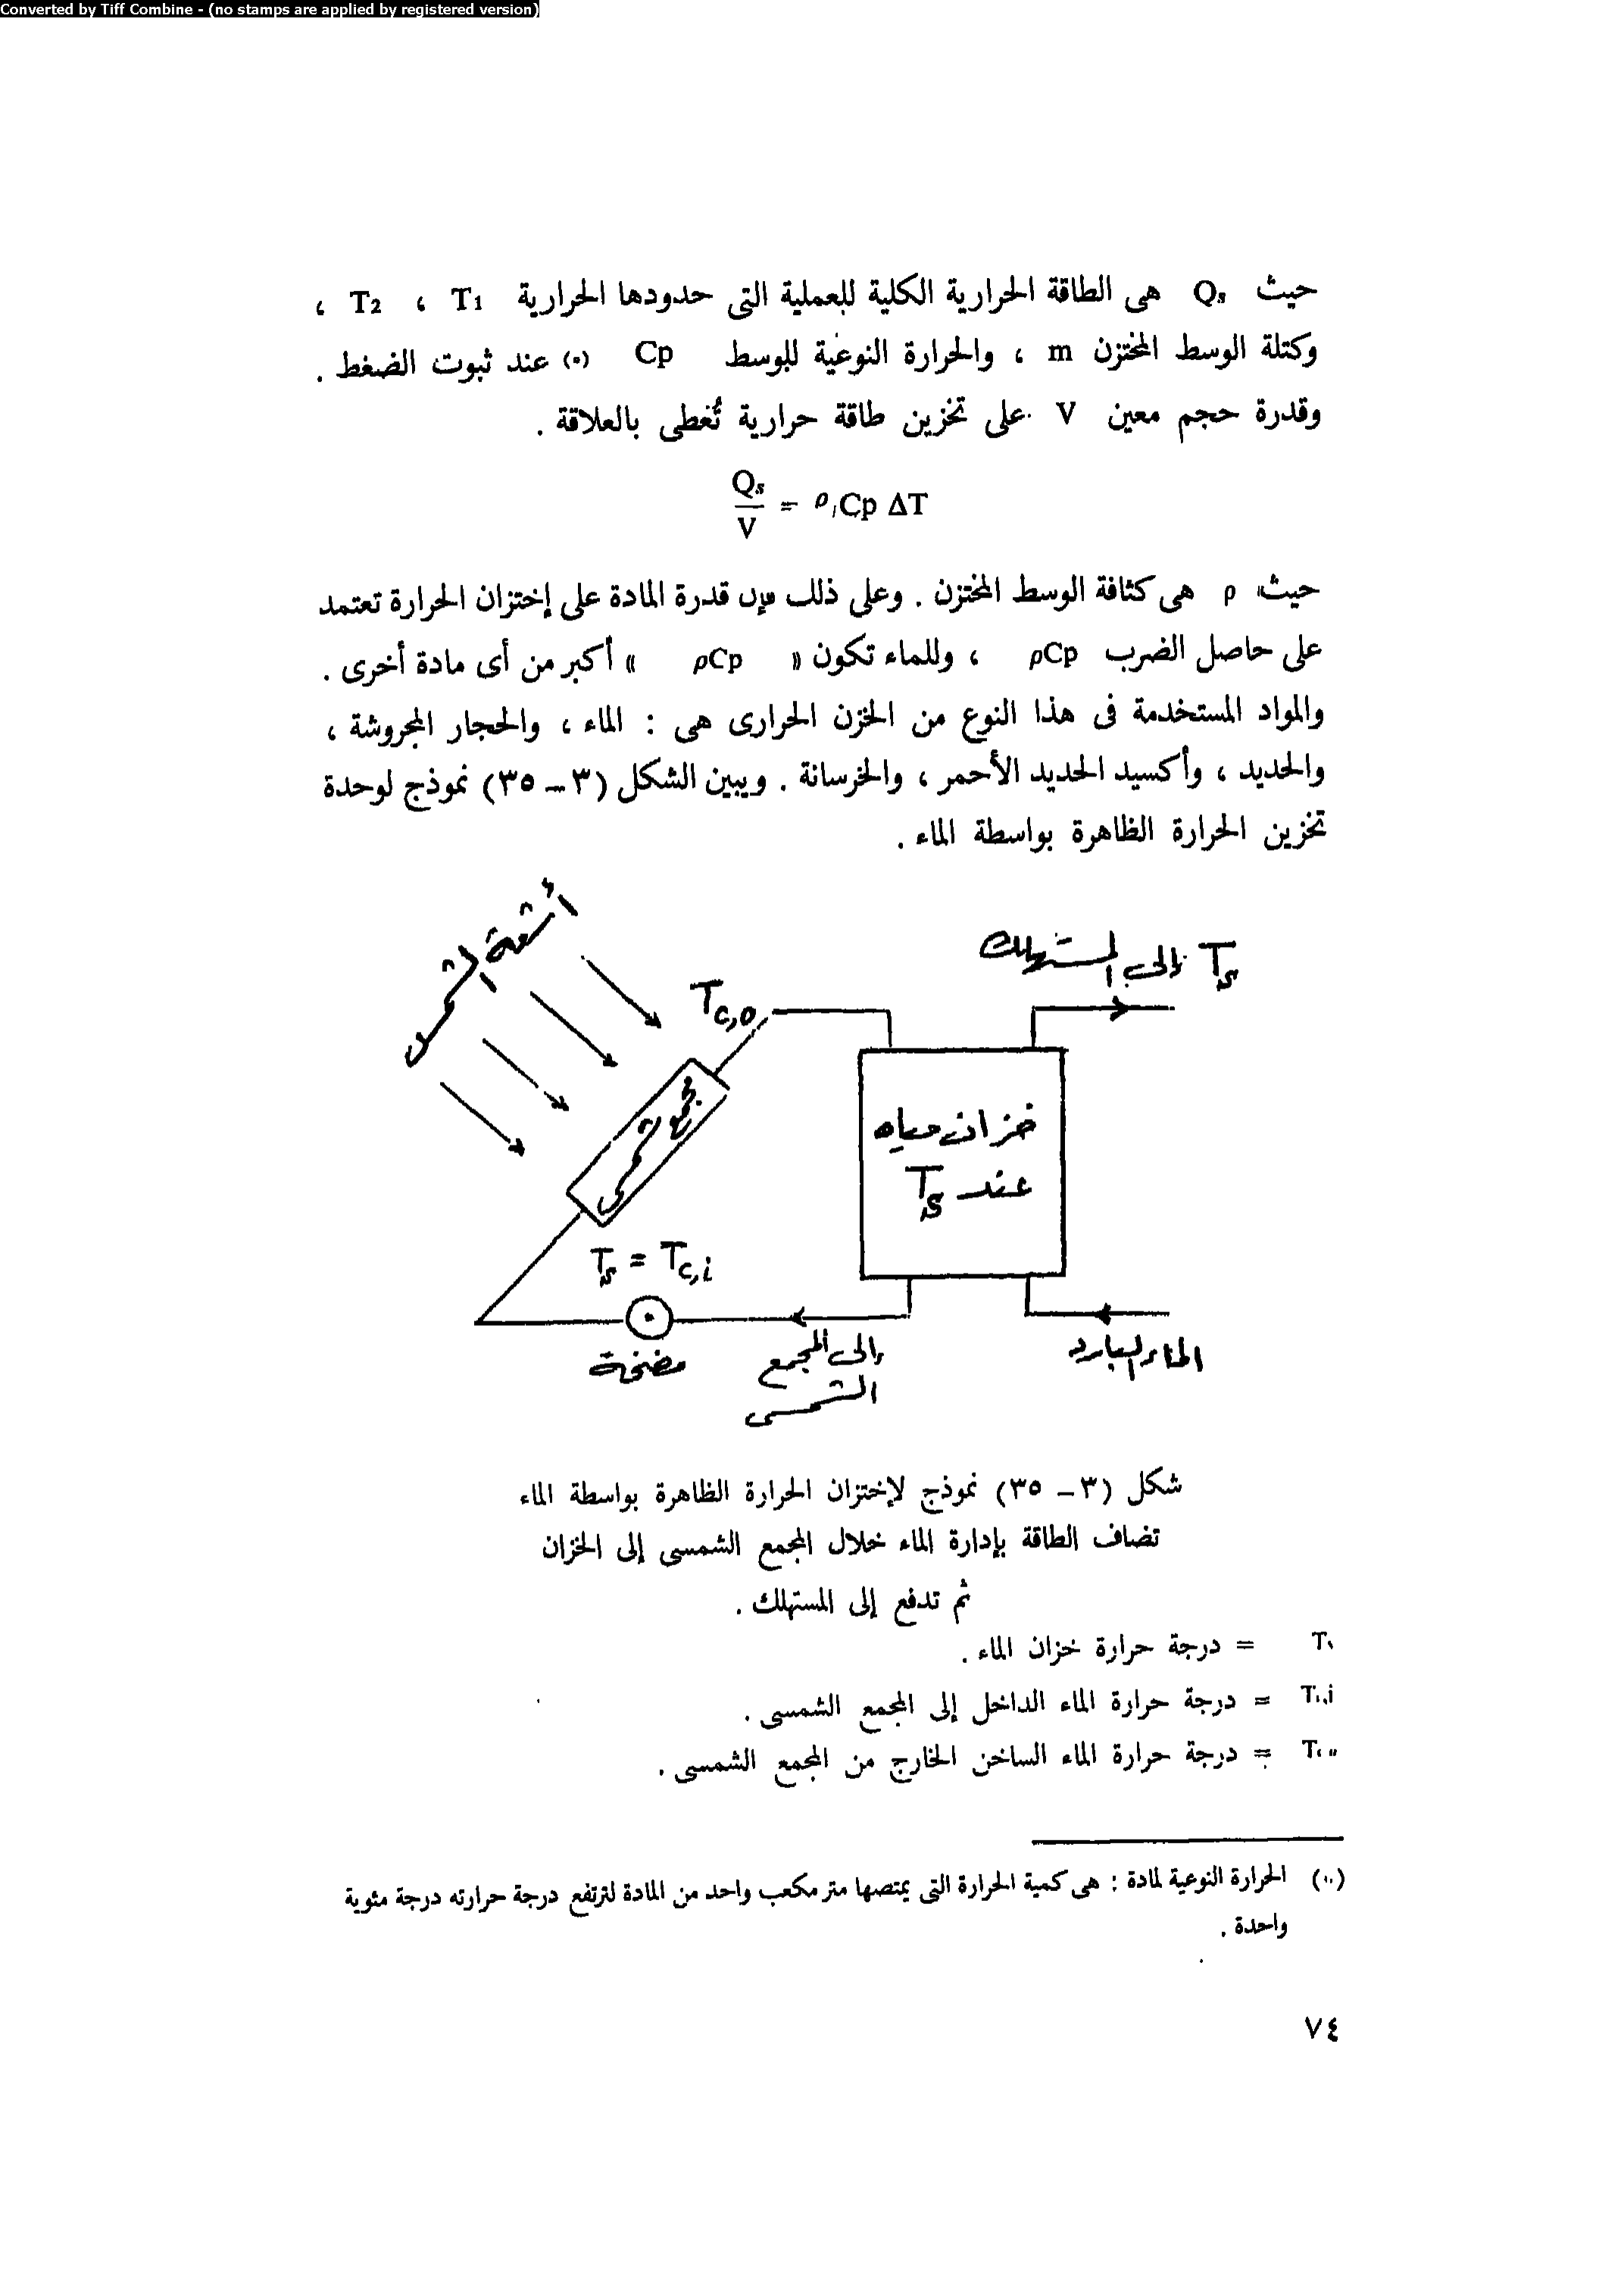 Converted by Tiff Combine - (no stamps are applied by registered version)
حيث Qs هى الطاقة الحرارية الكلية للعملية التى حدودها الحرارية T1 ، T2 ،
وكتلة الوسط المختزن m ، والحرارة النوعية للوسط Cp (٠) عند ثبوت الضغط .
وقدرة حجم معين V على تخزين طاقة حرارية تُغطى بالعلاقة .
Qs/V = ρ Cp ΔT
حيث ρ هى كثافة الوسط المختزن . وعلى ذلك فإن قدرة المادة على إختزان الحرارة تعتمد
على حاصل الضرب ρCp ، وللماء تكون « ρCp » أكبر من أى مادة أخرى .
والمواد المستخدمة فى هذا النوع من الخزن الحرارى هى : الماء ، والحجار المجروشة ،
والحديد ، وأكسيد الحديد الأحمر ، والخرسانة . ويبين الشكل (٣ – ٣٥) نموذج لوحدة
تخزين الحرارة الظاهرة بواسطة الماء .
أشعة الشمس
Ts إلى المستهلك
Tc,o
مجمع شمسى
خزان مياه
عند Ts
Ts = Tc,i
مضخة
إلى المجمع
الشمسى
الماء البارد
شكل (٣ – ٣٥) نموذج لإختزان الحرارة الظاهرة بواسطة الماء
تضاف الطاقة بإدارة الماء خلال المجمع الشمسى إلى الخزان
ثم تدفع إلى المستهلك .
= درجة حرارة خزان الماء .
= درجة حرارة الماء الداخل إلى المجمع الشمسى .
= درجة حرارة الماء الساخن الخارج من المجمع الشمسى .
(٠) الحرارة النوعية لمادة : هى كمية الحرارة التى يمتصها متر مكعب واحد من المادة لترتفع درجة حرارته درجة مئوية
واحدة .
٧٤